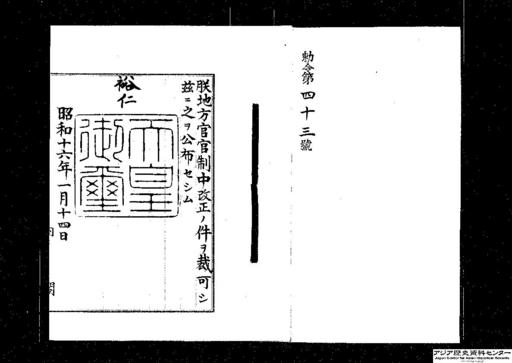 勅令第四十三號
朕地方官官制中改正ノ件ヲ裁可シ
茲ニ之ヲ公布セシム
裕仁
天皇
御璽
昭和十六年一月十四日
内閣
アジア歴史資料センター
Japan Center for Asian Historical Records